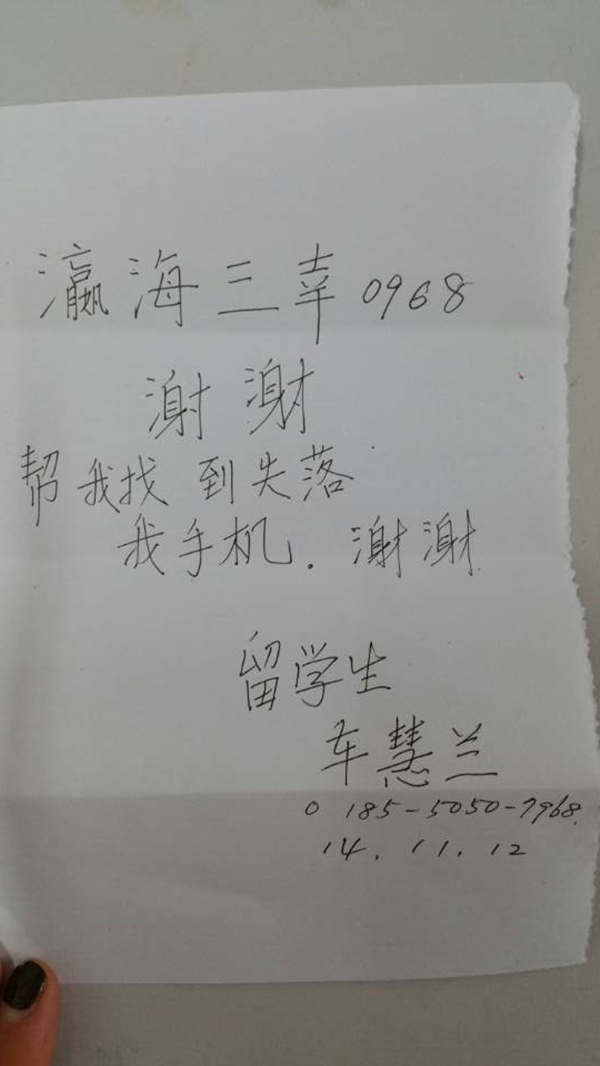 瀛海三幸0968
谢谢
帮我找到失落
我手机.谢谢
留学生
车慧兰
0 185-5050-7968.
14.11.12